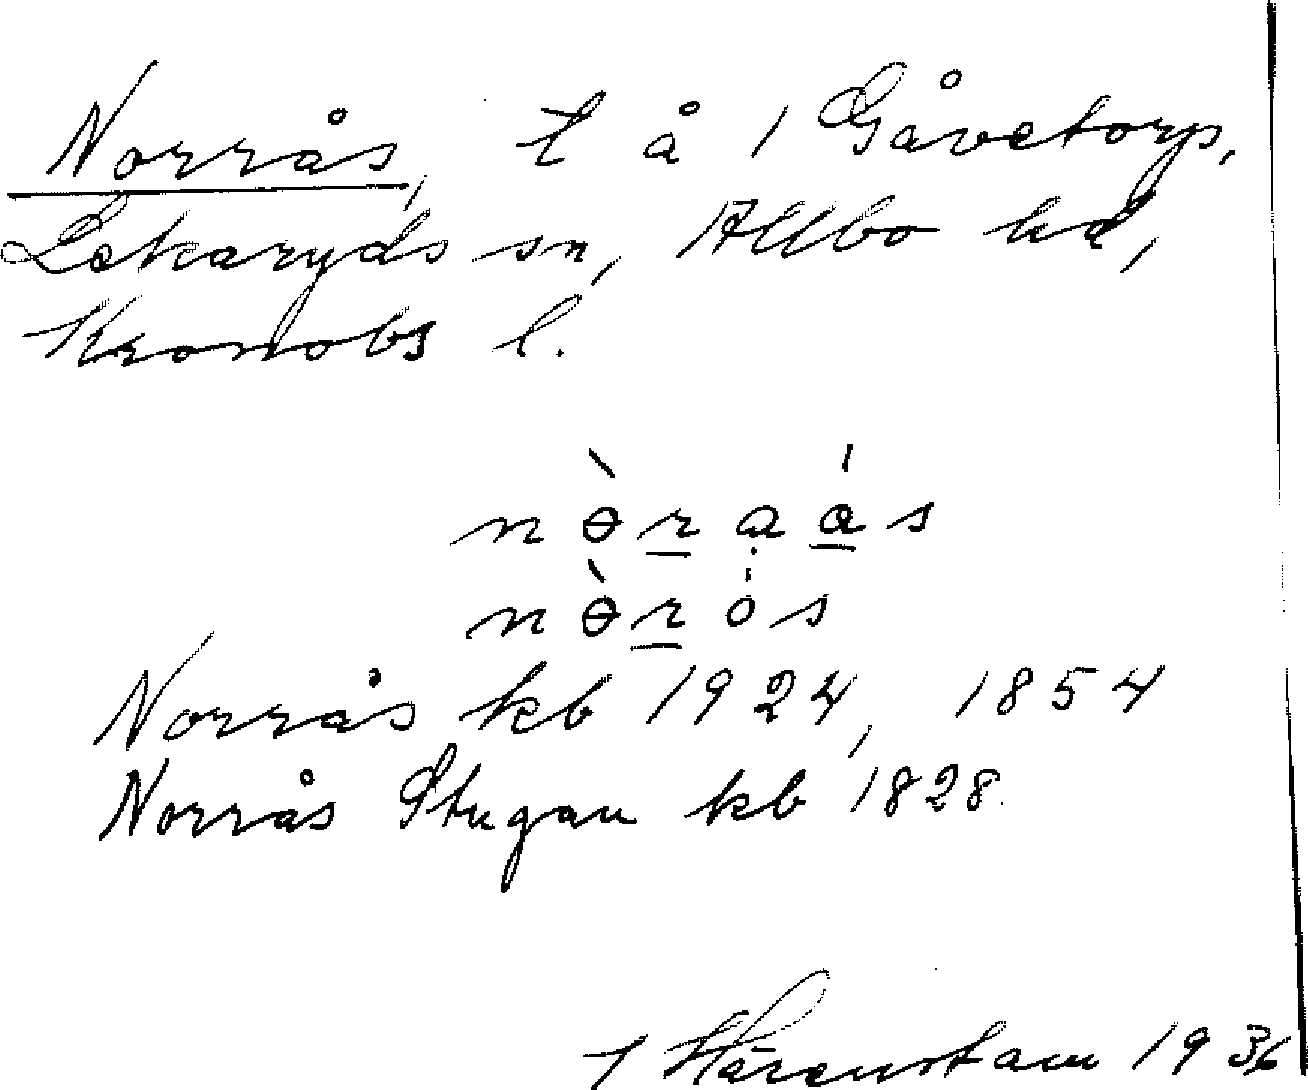 Norrås, t å 1 Gåvetorp,
Lekaryds sn, Allbo hd,
Kronobs l.
nɵ̀raás
nɵ̀rós
Norrås kb 1924, 1854
Norrås Stugan kb 1828.
Härenstam 1936